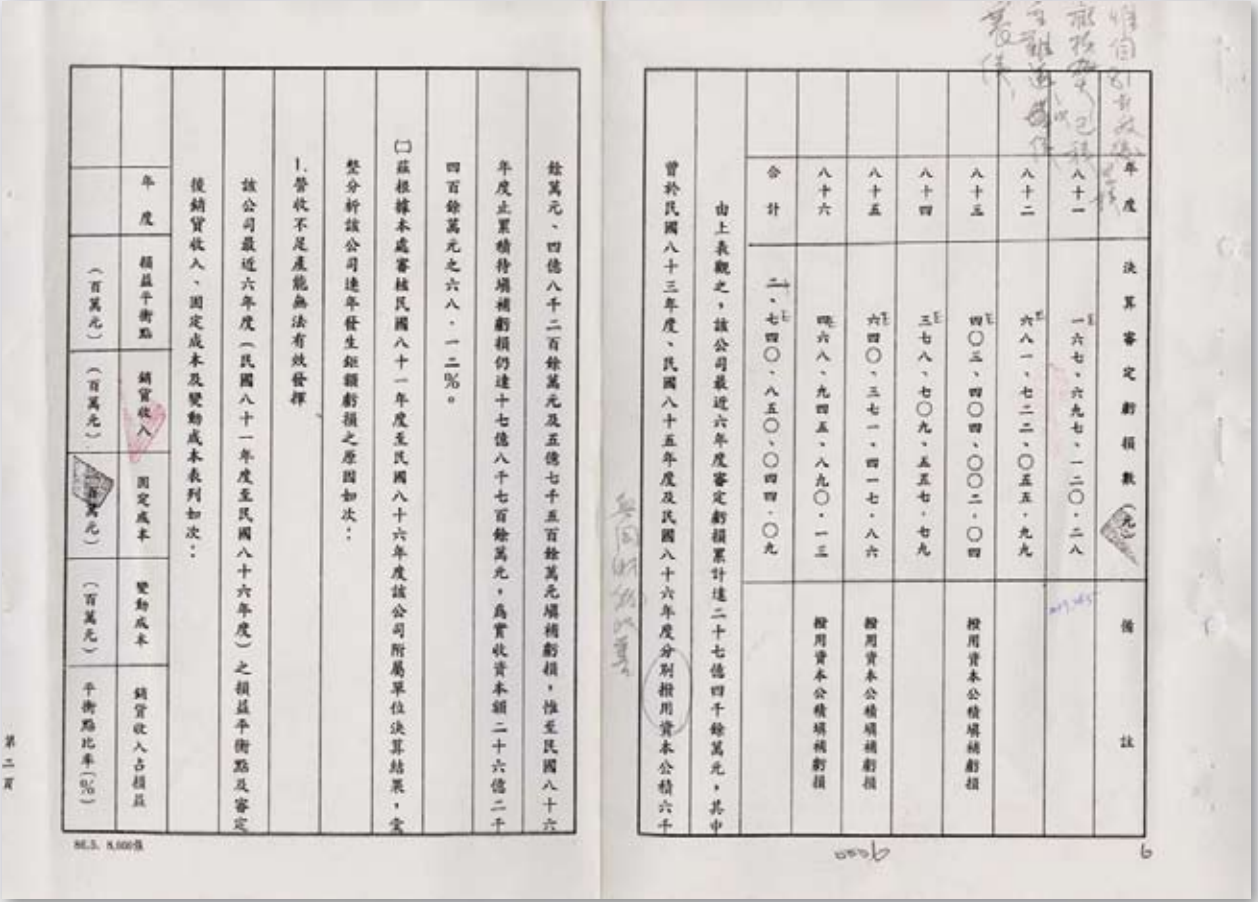 年度 決算審定虧損數(元) 備註
八十一 一六七、六九七、一二〇·二八
八十二 六八一、七二二、〇五五·九九
八十三 四〇三、四〇四、〇〇二·〇四 撥用資本公積填補虧損
八十四 三七八、七〇九、五五七·七九
八十五 六四〇、三七一、四一七·八六 撥用資本公積填補虧損
八十六 四六八、九四五、八九〇·一三 撥用資本公積填補虧損
合計 二、七四〇、八五〇、〇四四·〇九
由上表觀之,該公司最近六年度審定虧損累計達二十七億四千餘萬元,其中
曾於民國八十三年度、民國八十五年度及民國八十六年度分別撥用資本公積六千
6
餘萬元、四億八千二百餘萬元及五億七千五百餘萬元填補虧損,惟至民國八十六
年度止累積待填補虧損仍達十七億八千七百餘萬元,爲實收資本額二十六億二千
四百餘萬元之六八·一二%。
㈡茲根據本處審核民國八十一年度至民國八十六年度該公司附屬單位決算結果,彙
整分析該公司連年發生鉅額虧損之原因如次:
1.營收不足產能無法有效發揮
該公司最近六年度(民國八十一年度至民國八十六年度)之損益平衡點及審定
後銷貨收入、固定成本及變動成本表列如次:
年度 損益平衡點 銷貨收入 固定成本 變動成本 銷貨收入占損益
(百萬元) (百萬元) 百萬元) (百萬元) 平衡點比率(%)
第二頁
86.5. 8,600張